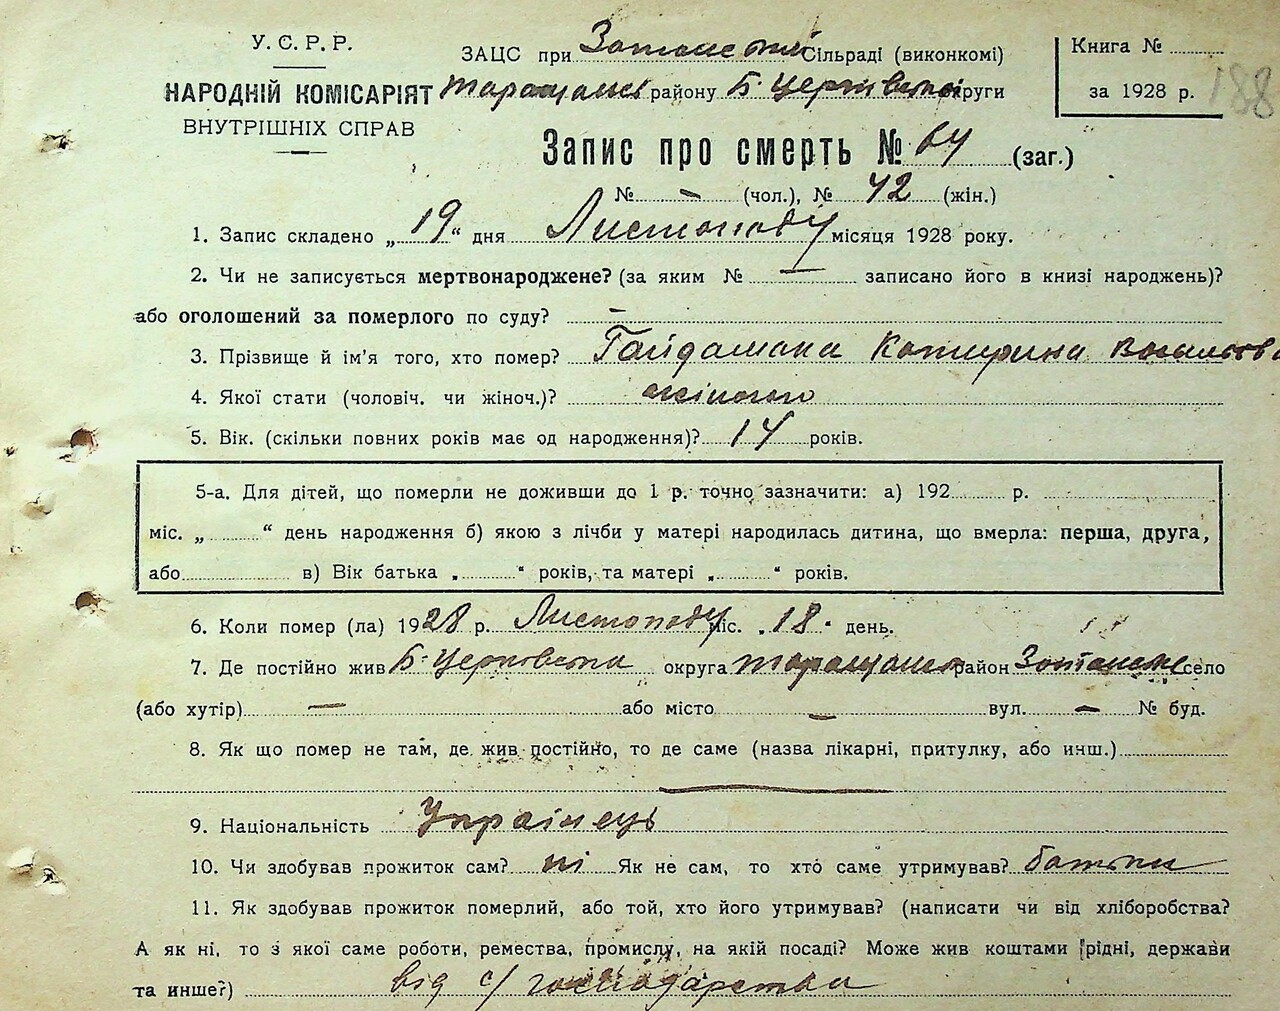 У.С.Р.Р.
НАРОДНІЙ КОМІСАРІЯТ
ВНУТРІШНІХ СПРАВ
ЗАЦС при Сільраді (виконкомі)
Таращанськ району Б. Церківської округи
Книга №
за 1928 р. 188
Запис про смерть № 64 (заг.)
№ - (чол.), № 42 (жін.)
1. Запис складено „19“ дня Листопаду місяця 1928 року.
2. Чи не записується мертвонароджене? (за яким № — записано його в книзі народжень)?
або оголошений за померлого по суду? –
3. Прізвище й ім'я того, хто помер? Гайдамака Катерина
4. Якої стати (чоловіч. чи жіноч.)? жіночого
5. Вік. (скільки повних років має од народження)? 14 років.
5-а. Для дітей, що померли не доживши до 1 р. точно зазначити: а) 192 р.
міс. „ “ день народження б) якою з лічби у матері народилась дитина, що вмерла: перша, друга,
або в) Вік батька „ “ років, та матері „ “ років.
6. Коли помер (ла) 1928 р. Листопаду міс. „18“ день.
7. Де постійно жив Б-Церковська округа Таращанськ район село
(або хутір) — або місто — вул. — № буд.
8. Як що помер не там, де жив постійно, то де саме (назва лікарні, притулку, або инш.)
9. Національність Українець
10. Чи здобував прожиток сам? ні Як не сам, то хто саме утримував? батьки
11. Як здобував прожиток померлий, або той, хто його утримував? (написати чи від хліборобства?
А як ні, то з якої саме роботи, ремества, промислу, на якій посаді? Може жив коштами рідні, держави
та инше?) від с/господарства